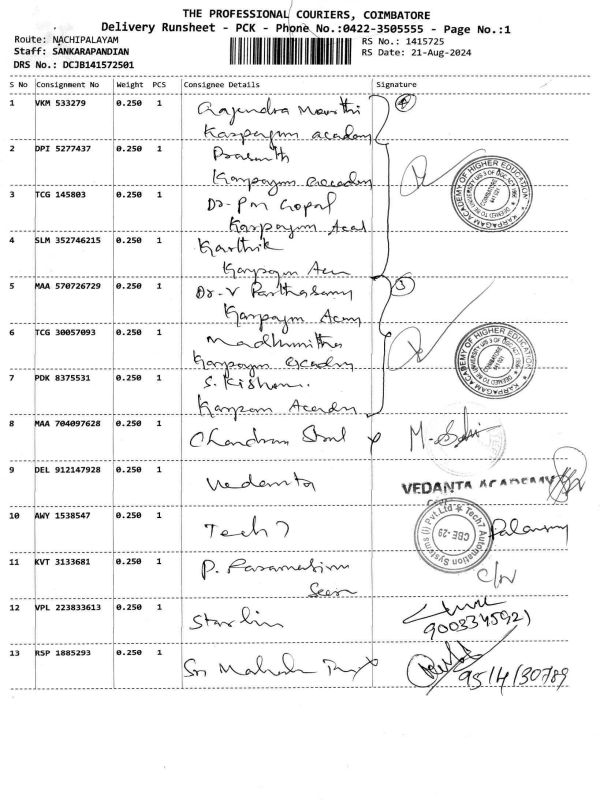 THE PROFESSIONAL COURIERS, COIMBATORE
Delivery Runsheet - PCK - Phone No.:0422-3505555 - Page No.:1
Route: NACHIPALAYAM RS No.: 1415725
Staff: SANKARAPANDIAN RS Date: 21-Aug-2024
DRS No.: DCJB141572501
S No Consignment No Weight PCS Consignee Details Signature
1 VKM 533279 0.250 1 Rajendra Moorthi
Karpagam academy
2 DPI 5277437 0.250 1 Prasanth
Karpagam academy
3 TCG 145803 0.250 1 Dr-PM Gopal
Karpagam Acad
4 SLM 352746215 0.250 1 Karthik
Karpagam
5 MAA 570726729 0.250 1 Dr-V Parthasamy 3
Karpagam
6 TCG 30057093 0.250 1 Madhumitha
Karpagam academy
7 PDK 8375531 0.250 1 S. Kishan.
Karpagam Academy
8 MAA 704097628 0.250 1 Chandran
9 DEL 912147928 0.250 1 Vedanta VEDANTA ACADEMY
10 AWY 1538547 0.250 1 Tech 7
Tech7 Automation Systems (I) Pvt.Ltd
CBE-29
11 KVT 3133681 0.250 1 P.
12 VPL 223833613 0.250 1 Starlin
9003345921
13 RSP 1885293 0.250 1 Sri
KARPAGAM ACADEMY OF HIGHER EDUCATION
KARPAGAM ACADEMY OF HIGHER EDUCATION